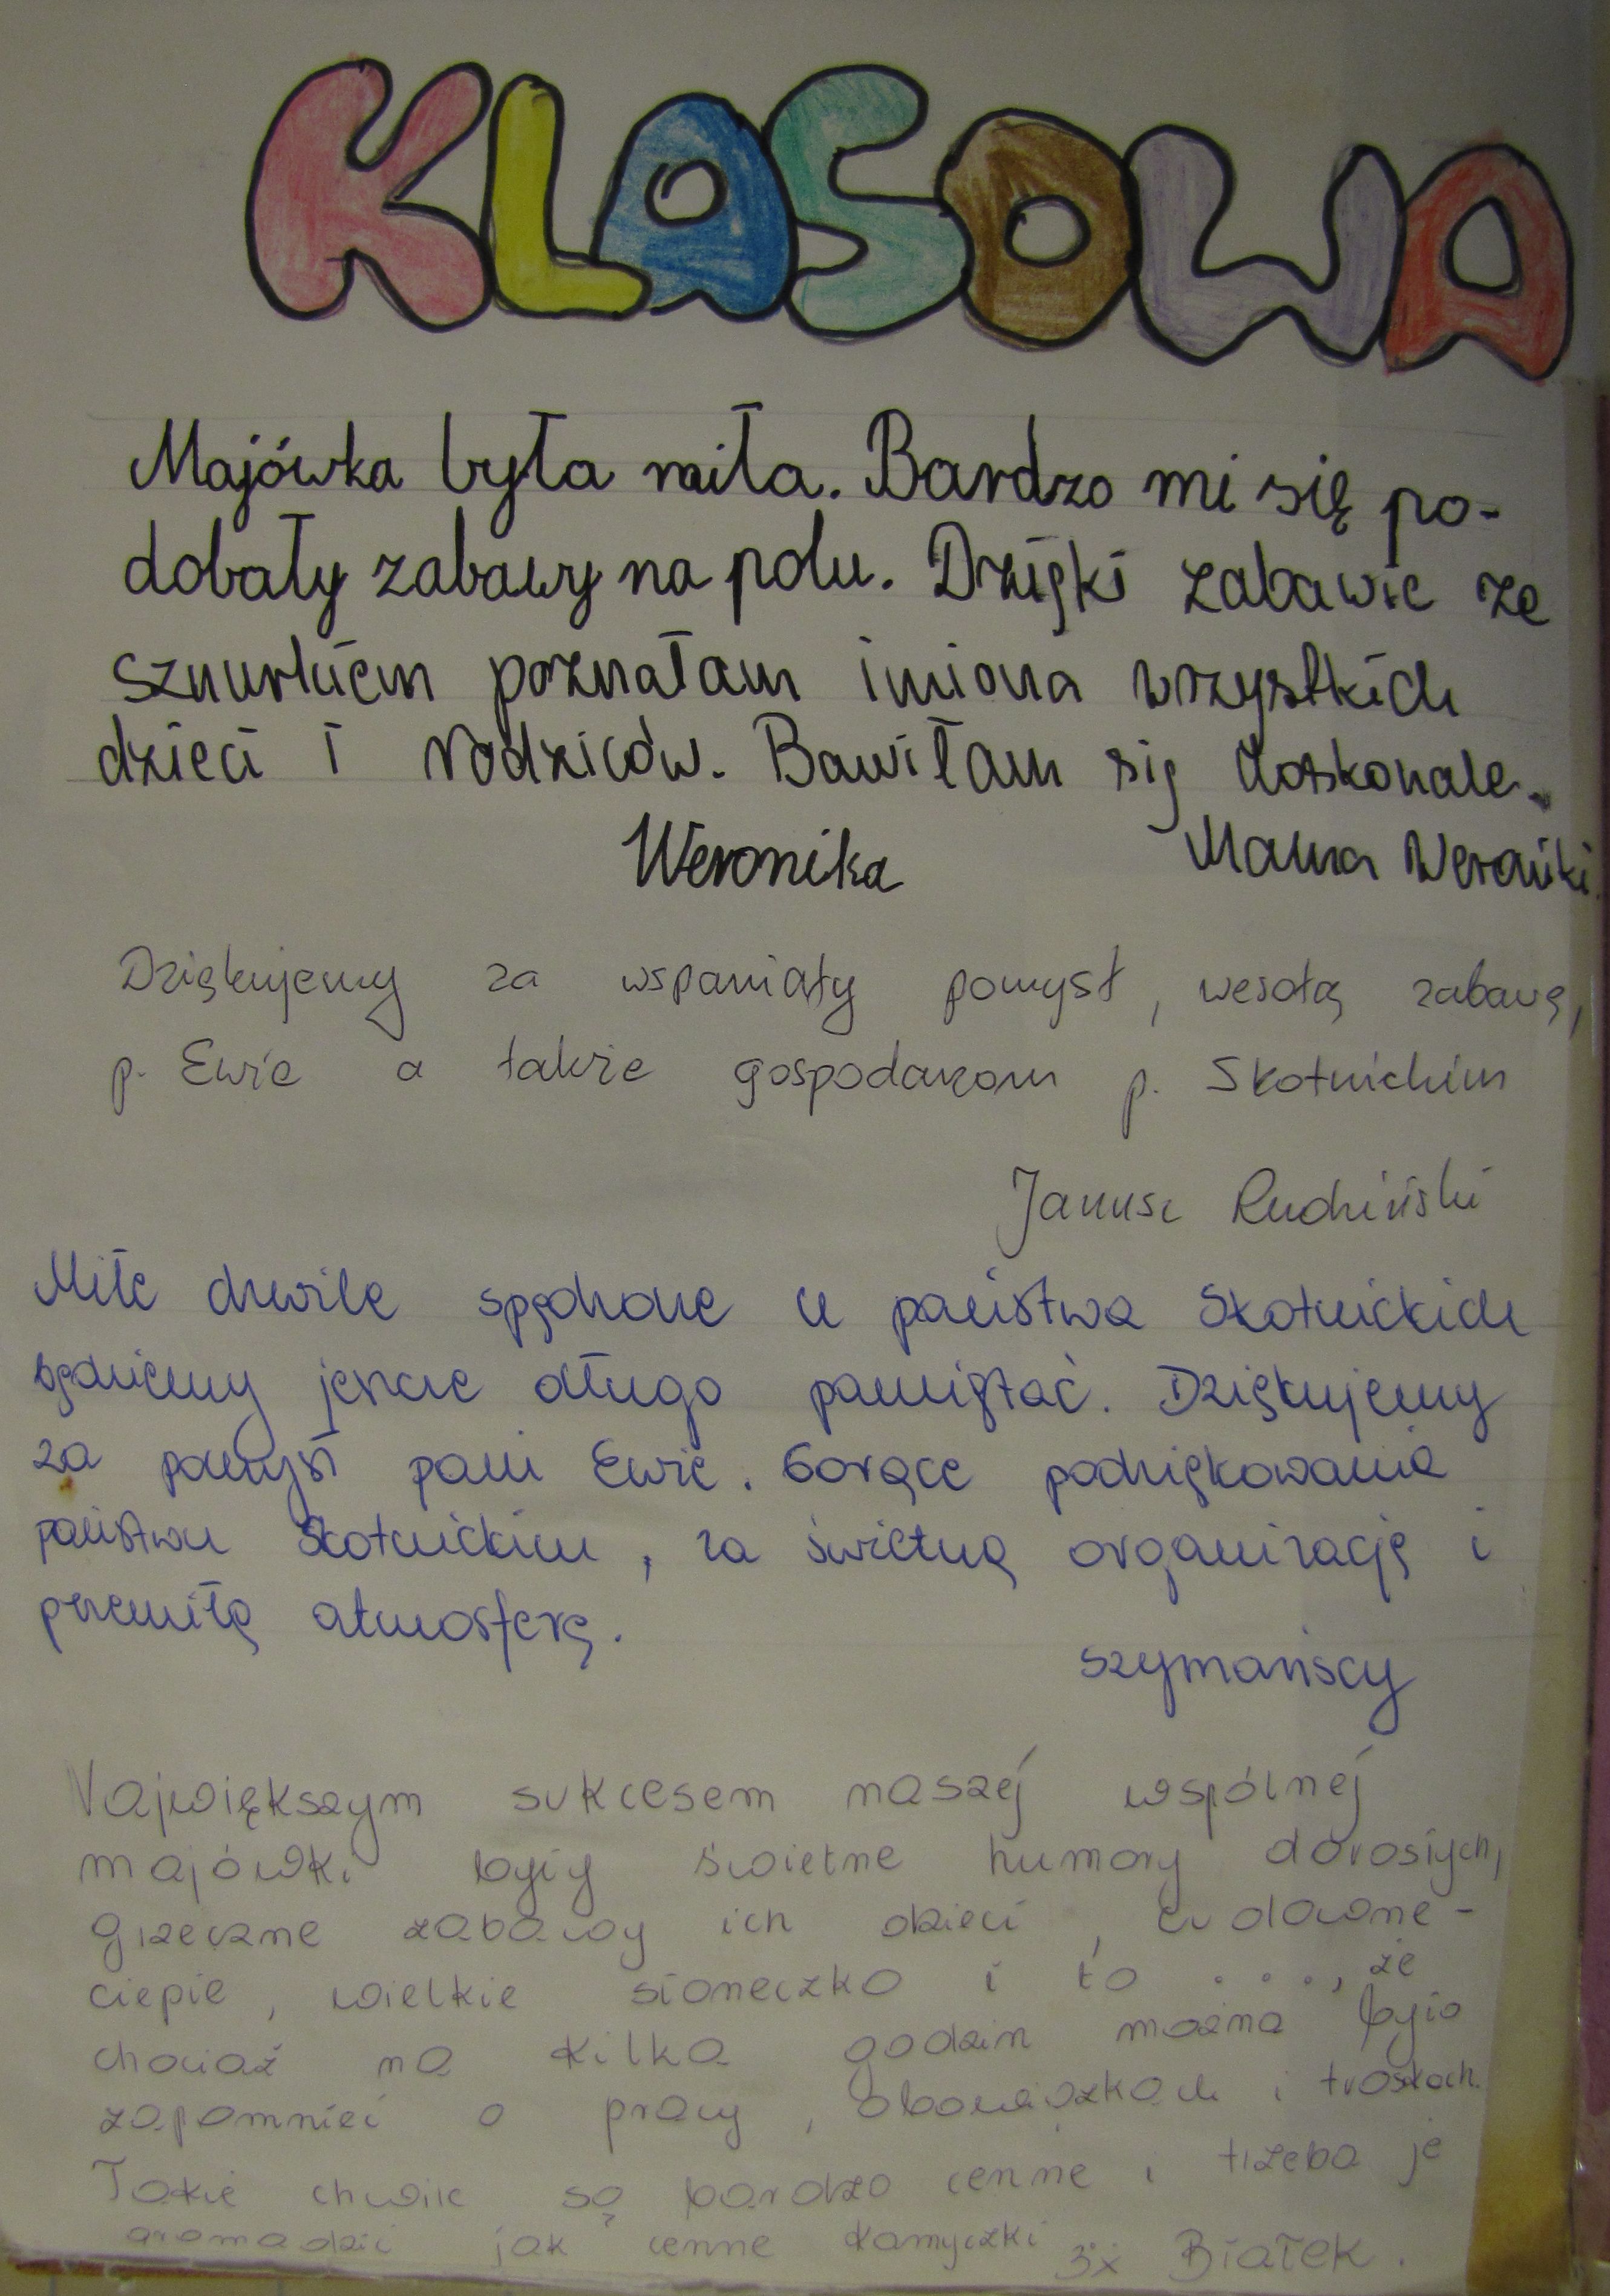 KLASOWA
Majówka była miła. Bardzo mi się po-
dobały zabawy na polu. Dzięki zabawie ze
sznurkiem poznałam imiona wszystkich
dzieci i rodziców. Bawiłam się doskonale.
Weronika Mama Weroniki.
Dziękujemy za wspaniały pomysł, wesołą zabawę,
p. Ewie a także gospodarzom p. Skotnickim
Janusz Rudziński
Miłe chwile spędzone u państwa Skotnickich
będziemy jeszcze długo pamiętać. Dziękujemy
za pomysł pani Ewie. Gorące podziękowania
państwu Skotnickim, za świetną organizację i
przemiłą atmosferę.
Szymańscy
Największym sukcesem naszej wspólnej
majówki były świetne humory dorosłych,
grzeczne zabawy ich dzieci, cudowne-
ciepłe, wielkie słoneczko i to ...., że
chociaż na kilka godzin można było
zapomnieć o pracy, obowiązkach i troskach.
Takie chwile są bardzo cenne i trzeba je
gromadzić jak cenne kamyczki 3x Białek.